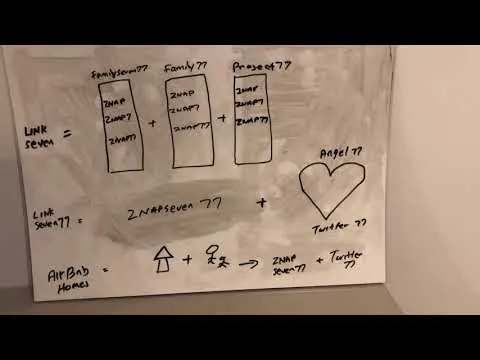 Familyseven77 Family77 Project77
ZNAP ZNAP ZNAP
ZNAP7 ZNAP7 ZNAP7
ZNAP77 ZNAP77 ZNAP77
LINK
Seven = + +
Angel77
LINK
Seven77 = ZNAPseven77 +
Twitter77
AirBnb
Homes = + → ZNAP
seven77 + Twitter
77